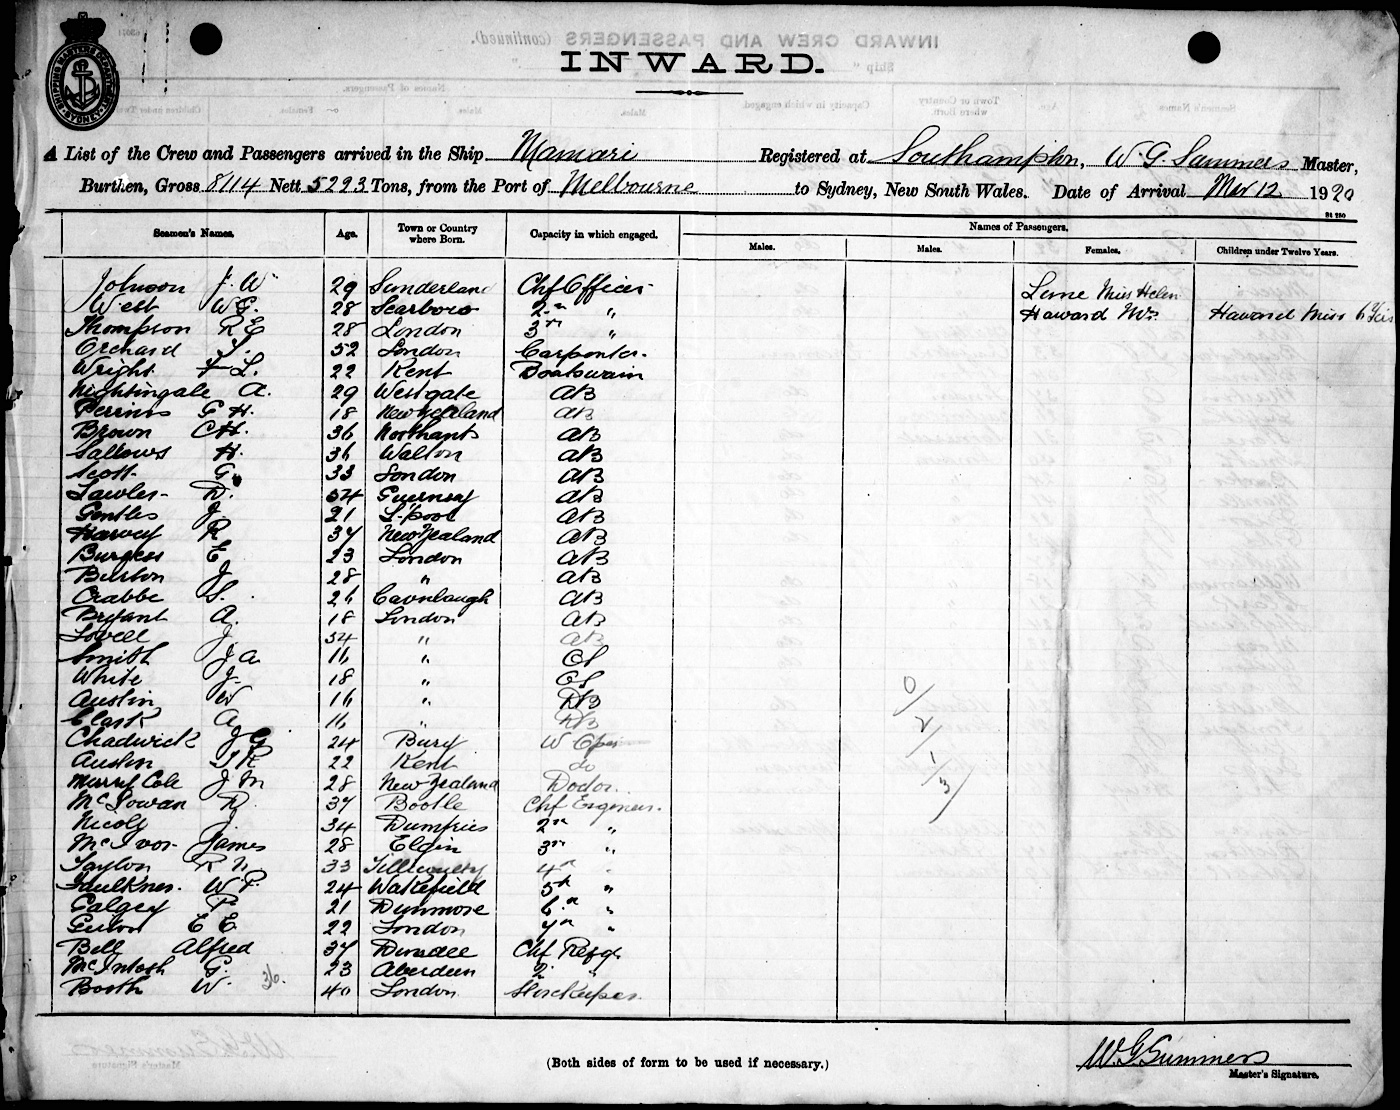 SHIPPING MASTERS DEPARTMENT
SYDNEY
INWARD.
A List of the Crew and Passengers arrived in the Ship Mamari Registered at Southampton, W. G. Summers Master,
Burthen, Gross 8114 Nett 5223 Tons, from the Port of Melbourne to Sydney, New South Wales. Date of Arrival Mar 12 1920
Seamen's Names. Age. Town or Country where Born. Capacity in which engaged. Names of Passengers.
Males. Males. Females. Children under Twelve Years.
Johnson J. W 29 Sunderland Chf Officer Miss Helen
West W G. 28 Scarboro 2nd " Haward Mrs. Haward Miss 6
Thompson R E 28 London 3rd "
Orchard 52 London Carpenter.
Wright F L. 22 Kent Boatswain
Nightingale A. 29 Westgate AB
Perrins G H. 18 New Zealand AB
Brown C H. 36 Northants AB
Sallows H. 36 Walton AB
Scott G. 33 London AB
Lawler D. 34 Guernsey AB
Gentles J. 21 L'pool AB
Harvey R 37 New Zealand AB
Burgess E 23 London AB
Burton J 28 " AB
Crabbe S. 26 AB
Bryant A. 18 London AB
Lovell J 34 " AB
Smith J A 16 " OS
White J. 18 " OS
Austin W 16 " DB
Clark A 16 " DB
Chadwick J G 24 Bury W Opr
Austin R 22 Kent do
J M 28 New Zealand Doctor
McGowan D. 37 Bootle Chf Engineer.
Nicoll J 34 Dumfries 2nd "
McIvor James 28 Elgin 3rd "
Taylor R N 33 Tillicoultry 4th "
Faulkner. W. P. 24 Wakefield 5th "
P 21 Dunmore 6th "
E E 22 London 7th "
Bell Alfred 37 Dundee Chf Refg.
McIntosh G. 23 Aberdeen 2 "
Booth W. 36. 40 London Storekeeper
0/
2/
1/
3/
(Both sides of form to be used if necessary.)
W G Summers
Master's Signature.